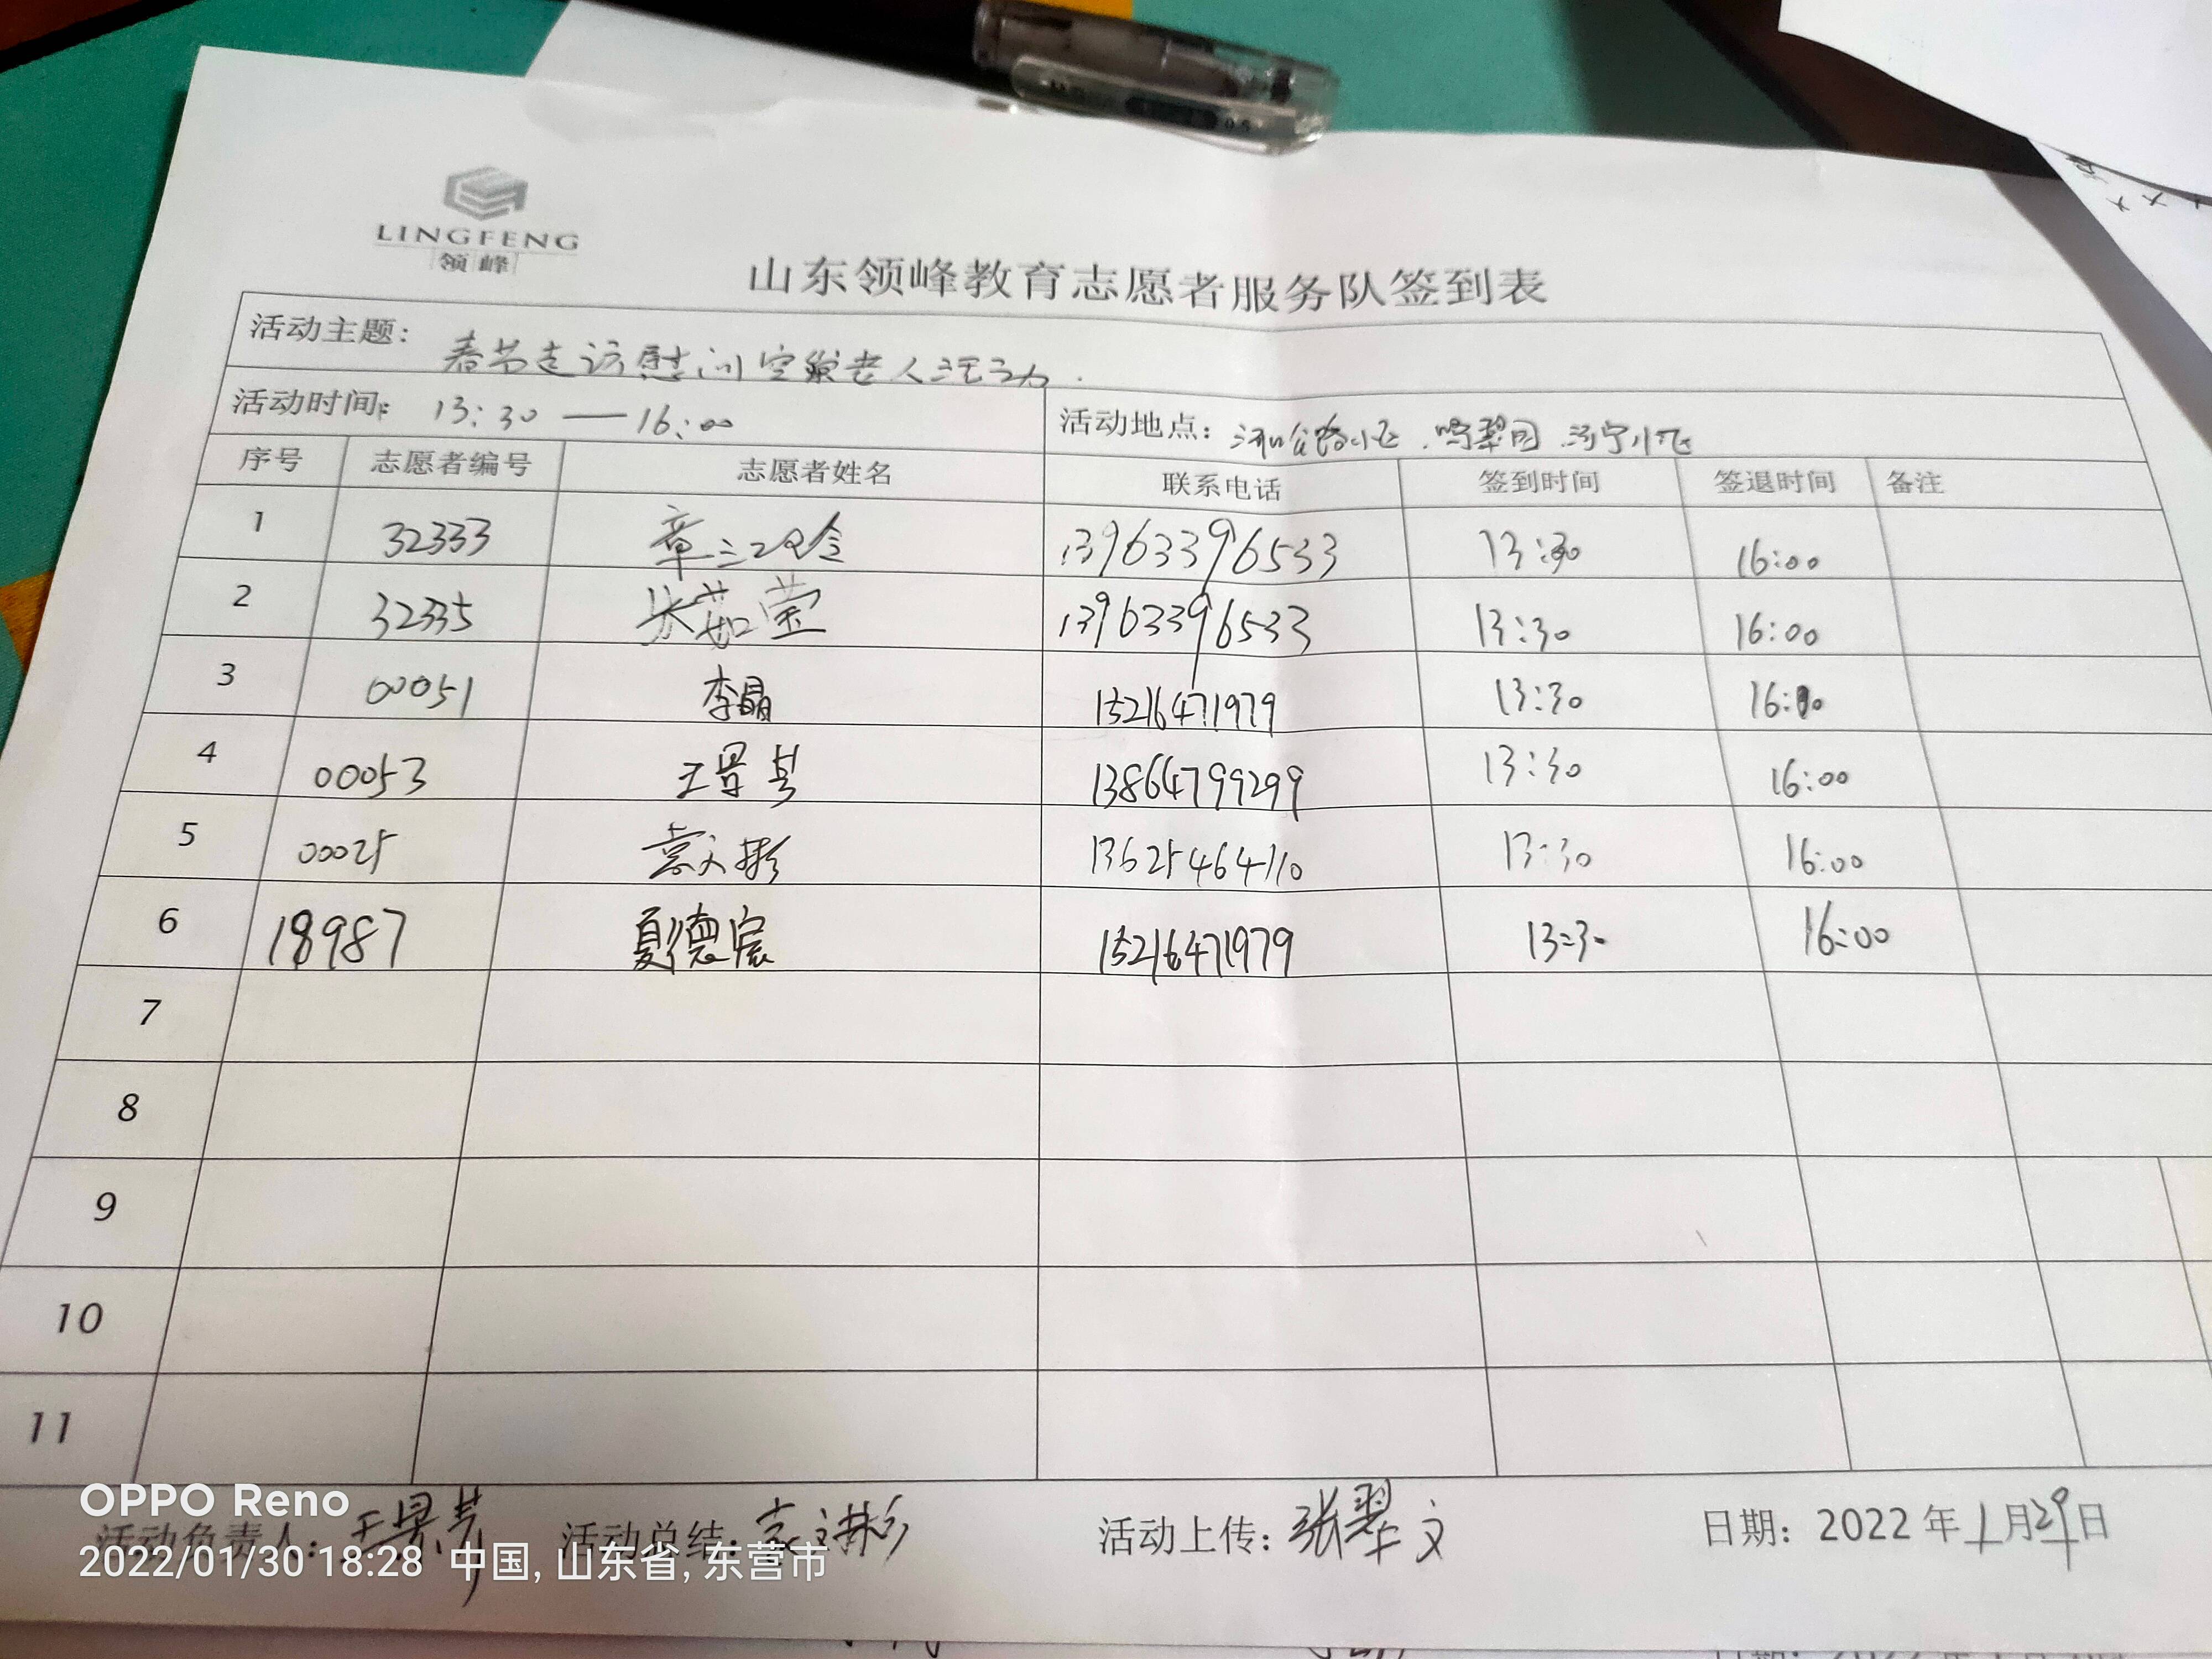 LINGFENG
领峰
山东领峰教育志愿者服务队签到表
活动主题: 春节走访慰问空巢老人活动.
活动时间: 13:30 — 16:00 活动地点: 鸣翠园
序号 志愿者编号 志愿者姓名 联系电话 签到时间 签退时间 备注
1 32333 13963396533 13:30 16:00
2 32335 张茹莹 13963396533 13:30 16:00
3 00051 李晶 15216471979 13:30 16:00
4 00053 王景芳 13864799299 13:30 16:00
5 00025 袁文彬 13625464110 13:30 16:00
6 18987 夏德宸 15216471979 13:30 16:00
7
8
9
10
11
活动负责人: 王景芳 活动总结: 袁文彬 活动上传: 张翠文 日期: 2022年1月29日
OPPO Reno
2022/01/30 18:28 中国, 山东省, 东营市